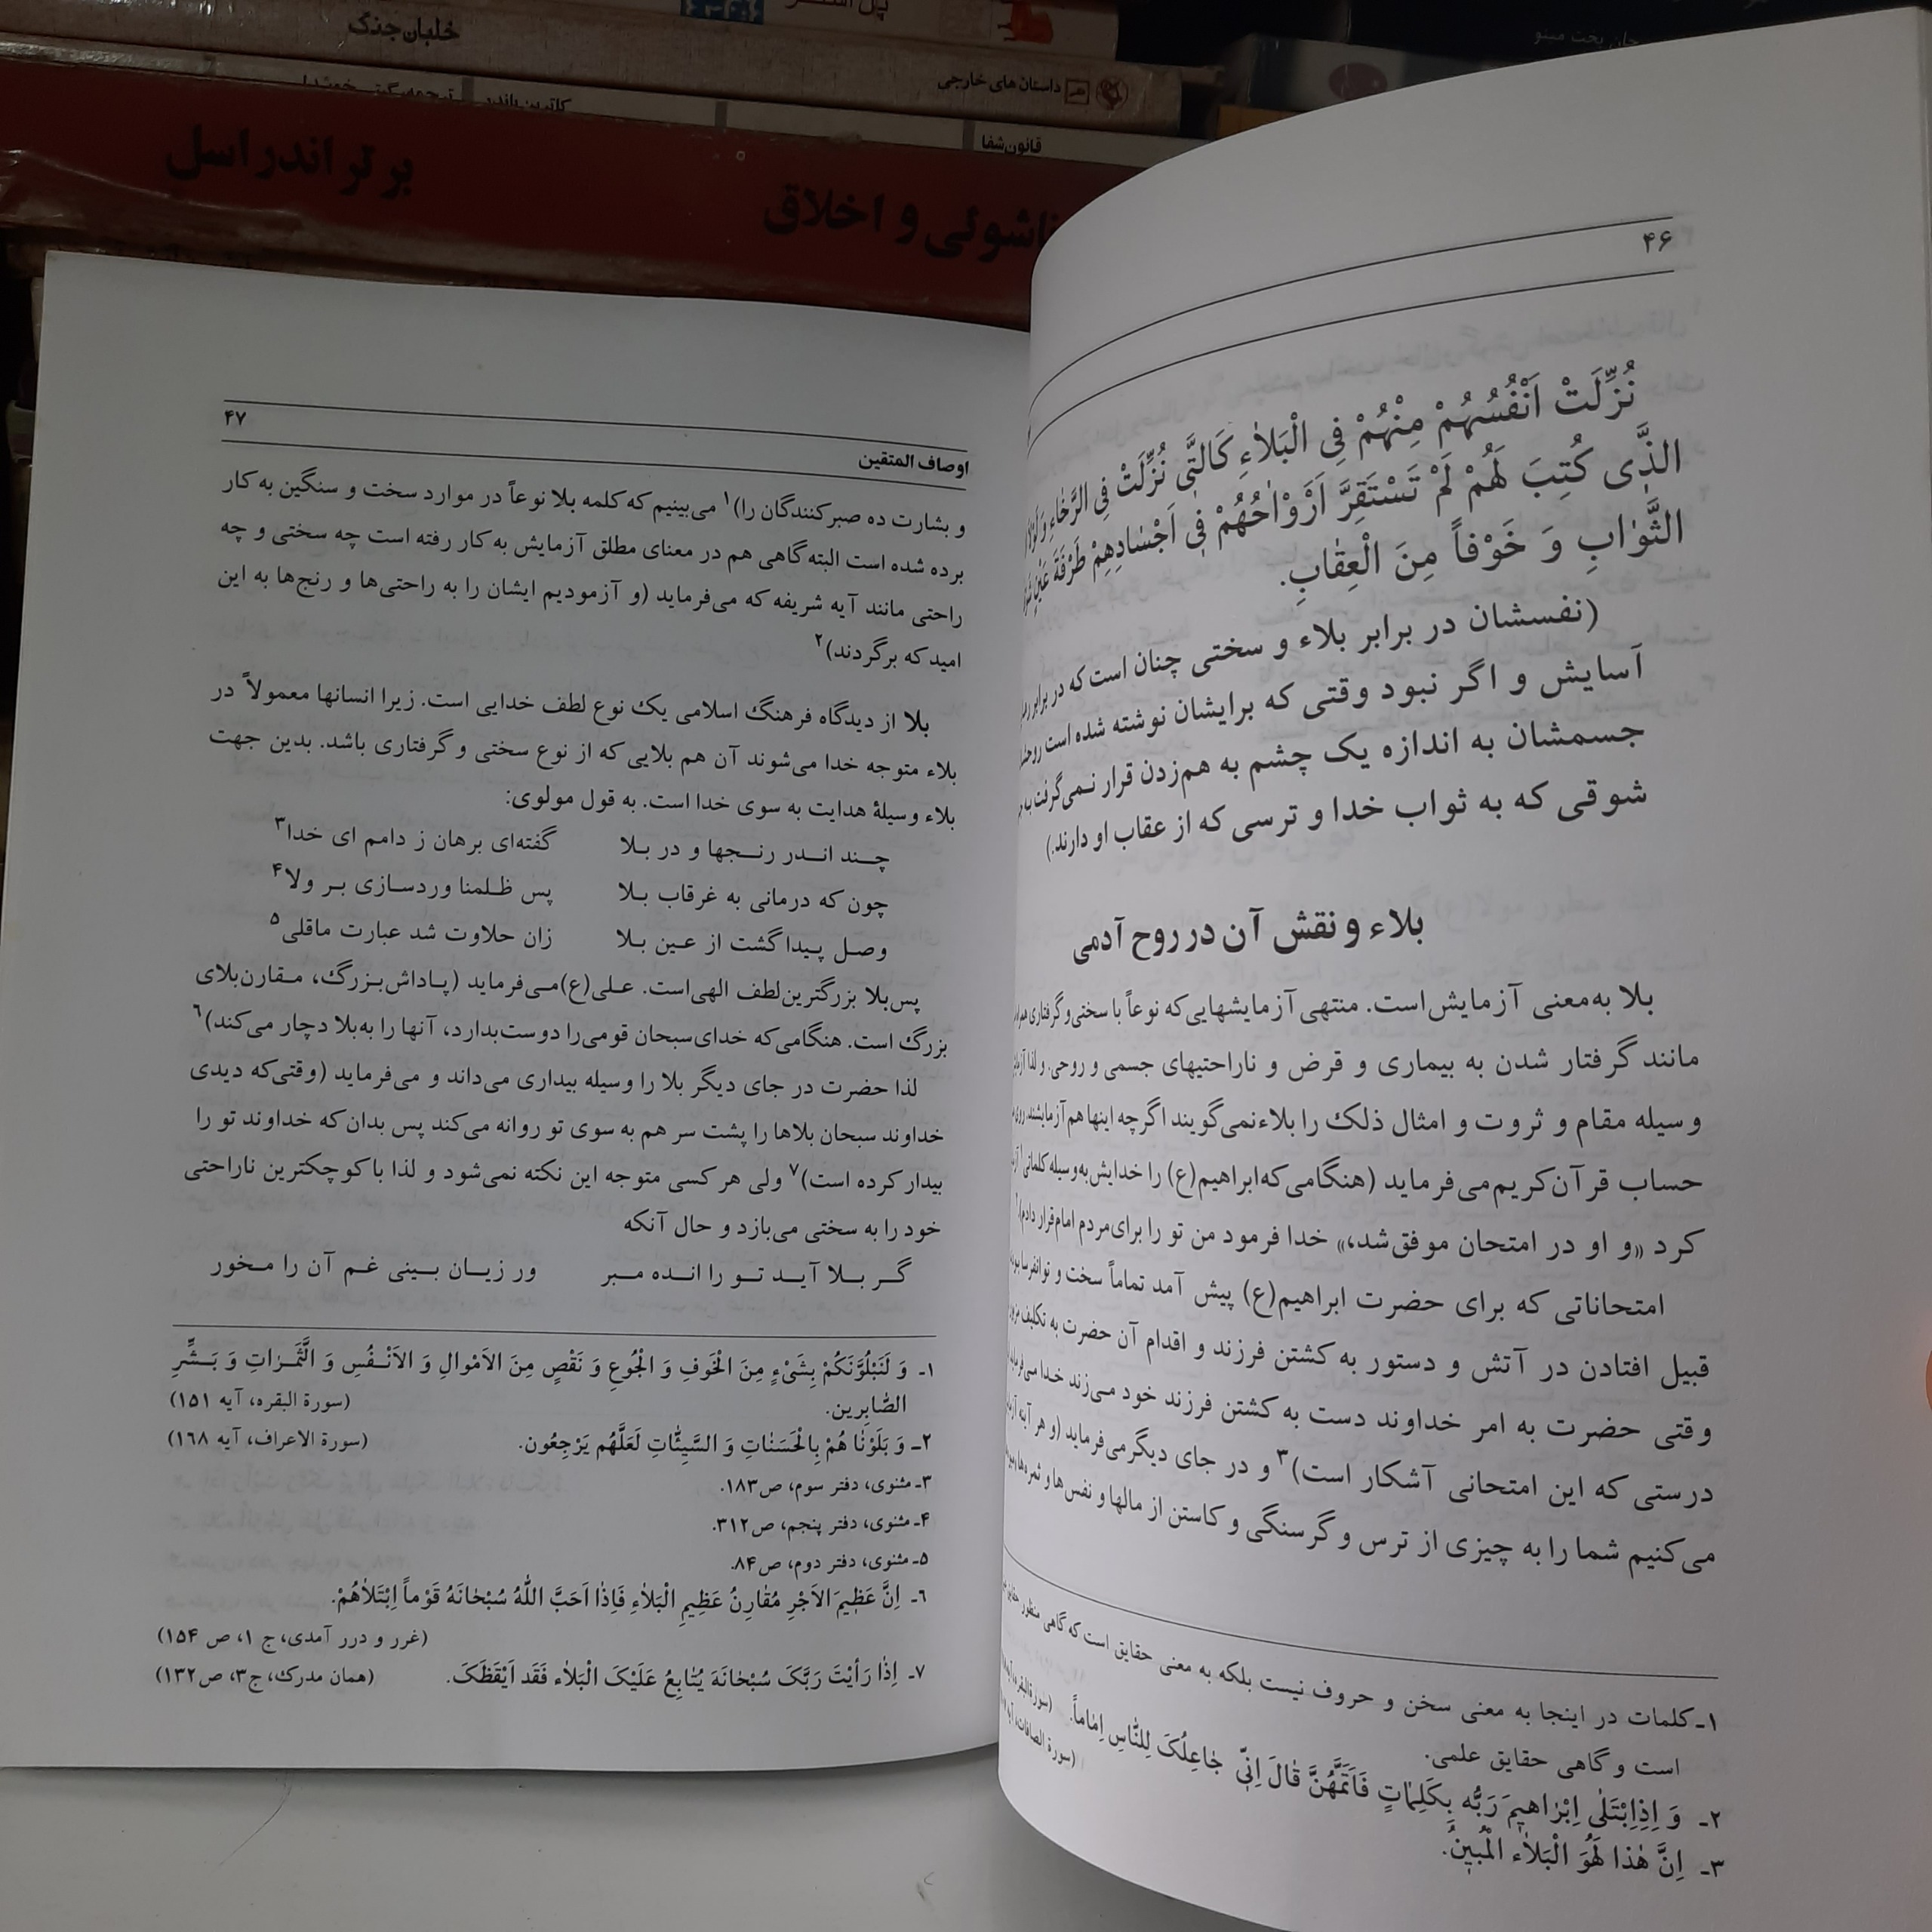 خلبان جنگ
داستان های خارجی
قانون شفا
برتراندراسل
ناشوئی و اخلاق
۴۶
نُزِّلَتْ اَنْفُسُهُمْ مِنْهُمْ فِی الْبَلاٰءِ کَالَتّٰی نُزِّلَتْ فِی الرَّخٰاءِ وَ
الذَّی کُتِبَ لَهُمْ لَمْ تَسْتَقِرَّ اَرْوٰاحُهُمْ فٖی اَجْسٰادِهِمْ طَرْفَةَ عَیْنٍ
الثَّوٰابِ وَ خَوْفاً مِنَ الْعِقٰابِ.
(نفسشان در برابر بلاء و سختی چنان است که در برابر
آسایش و اگر نبود وقتی که برایشان نوشته شده است
جسمشان به اندازه یک چشم به هم‌زدن قرار نمی‌گرفت به
شوقی که به ثواب خدا و ترسی که از عقاب او دارند.)
بلاء و نقش آن در روح آدمی
بلا به‌معنی آزمایش‌است. منتهی آزمایشهایی‌که نوعاً با سختی‌و گرفتاری
مانند گرفتار شدن به بیماری و قرض و ناراحتیهای جسمی و روحی. و لذا
وسیله مقام و ثروت و امثال ذلک را بلاءنمی‌گویند اگرچه اینها هم آزمایشند.
حساب قرآن‌کریم‌می‌فرماید (هنگامی‌که‌ابراهیم(ع) را خدایش‌به‌وسیله کلماتی۱
کرد «و او در امتحان موفق‌شد،» خدا فرمود من تو را برای‌مردم امام‌قرار دادم).۲
امتحاناتی که برای حضرت ابراهیم(ع) پیش آمد تماماً سخت و توانفرسا
قبیل افتادن در آتش و دستور به کشتن فرزند و اقدام آن حضرت به تکلیف
وقتی حضرت به امر خداوند دست به کشتن فرزند خود می‌زند خدا می‌فرماید
درستی که این امتحانی آشکار است)۳ و در جای دیگر می‌فرماید (و هر آینه
می‌کنیم شما را به چیزی از ترس و گرسنگی و کاستن از مالها و نفس‌ها و ثمره‌ها
۱ـ کلمات در اینجا به معنی سخن و حروف نیست بلکه به معنی حقایق است که گاهی منظور حقایق
است و گاهی حقایق علمی.
۲ـ وَ اِذِابْتَلٰی اِبْرٰاهیمَ رَبُّه بِکَلِمٰاتٍ فَاَتَمَّهُنَّ قٰالَ اِنّٖی جٰاعِلُکَ لِلنّٰاسِ اِمٰاماً. (سورةالبقره، آیه
۳ـ اِنَّ هٰذا لَهُوَ الْبَلاٰء الْمُبینُ. (سورة الصافات، آیه
۴۷
اوصاف المتقین
و بشارت ده صبرکنندگان را)۱ می‌بینیم که کلمه بلا نوعاً در موارد سخت و سنگین به کار
برده شده است البته گاهی هم در معنای مطلق آزمایش به کار رفته است چه سختی و چه
راحتی مانند آیه شریفه که می‌فرماید (و آزمودیم ایشان را به راحتی‌ها و رنج‌ها به این
امید که برگردند)۲
بلا از دیدگاه فرهنگ اسلامی یک نوع لطف خدایی است. زیرا انسانها معمولاً در
بلاء متوجه خدا می‌شوند آن هم بلایی که از نوع سختی و گرفتاری باشد. بدین جهت
بلاء وسیلهٔ هدایت به سوی خدا است. به قول مولوی:
چـند انـدر رنـجها و در بـلا گفته‌ای برهان ز دامم ای خدا۳
چون که درمانی به غرقاب بـلا پس ظـلمنا وردسـازی بـر ولا۴
وصـل پـیدا گشت از عـین بـلا زان حلاوت شد عبارت ماقلی۵
پس‌بلا بزرگترین‌لطف الهی‌است. عـلی(ع)مـی‌فرماید (پـاداش‌بـزرگ، مـقارن‌بلای
بزرگ است. هنگامی‌که خدای‌سبحان قومی‌را دوست‌بدارد، آنها را به‌بلا دچار می‌کند)۶
لذا حضرت در جای دیگر بلا را وسیله بیداری می‌داند و می‌فرماید (وقتی‌که دیدی
خداوند سبحان بلاها را پشت سر هم به سوی تو روانه می‌کند پس بدان که خداوند تو را
بیدار کرده است)۷ ولی هر کسی متوجه این نکته نمی‌شود و لذا با کوچکترین ناراحتی
خود را به سختی می‌بازد و حال آنکه
گـر بـلا آیـد تـو را انـده مـبر ور زیـان بـینی غـم آن را مـخور
۱ـ وَ لَنَبْلُوَّنَکُمْ بِشَیْءٍ مِنَ الْخَوفِ وَ الْجُوعِ وَ نَقْصٍ مِنَ الاَمْوالِ وَ الاَنْـفُسِ وَ الَّثَمَـراتِ وَ بَـشِّرِ
الصّٰابِرین. (سورة البقره، آیه ۱۵۱)
۲ـ وَ بَلَوْنٰا هُمْ بِالْحَسَنٰاتِ وَ السَّیِئّٰاتِ لَعَلَّهُم یَرْجِعُون. (سورة الاعراف، آیه ۱۶۸)
۳ـ مثنوی، دفتر سوم، ص۱۸۳.
۴ـ مثنوی، دفتر پنجم، ص۳۱۲.
۵ـ مثنوی، دفتر دوم، ص۸۴.
۶ـ اِنَّ عَظٖیمَ الاَجْرِ مُقٰارِنُ عَظٖیمِ الْبَلاٰءِ فَاِذٰا اَحَبَّ اللّٰهُ سُبْحٰانَهُ قَوْماً اِبْتَلاٰهُمْ.
(غرر و درر آمدی، ج ۱، ص ۱۵۴)
۷ـ اِذٰا رَأیْتَ رَبَّکَ سُبْحٰانَهَ یُتٰابِعُ عَلَیْکَ الْبَلاٰء فَقَد اَیْقَظَکَ. (همان مدرک، ج۳، ص۱۳۲)